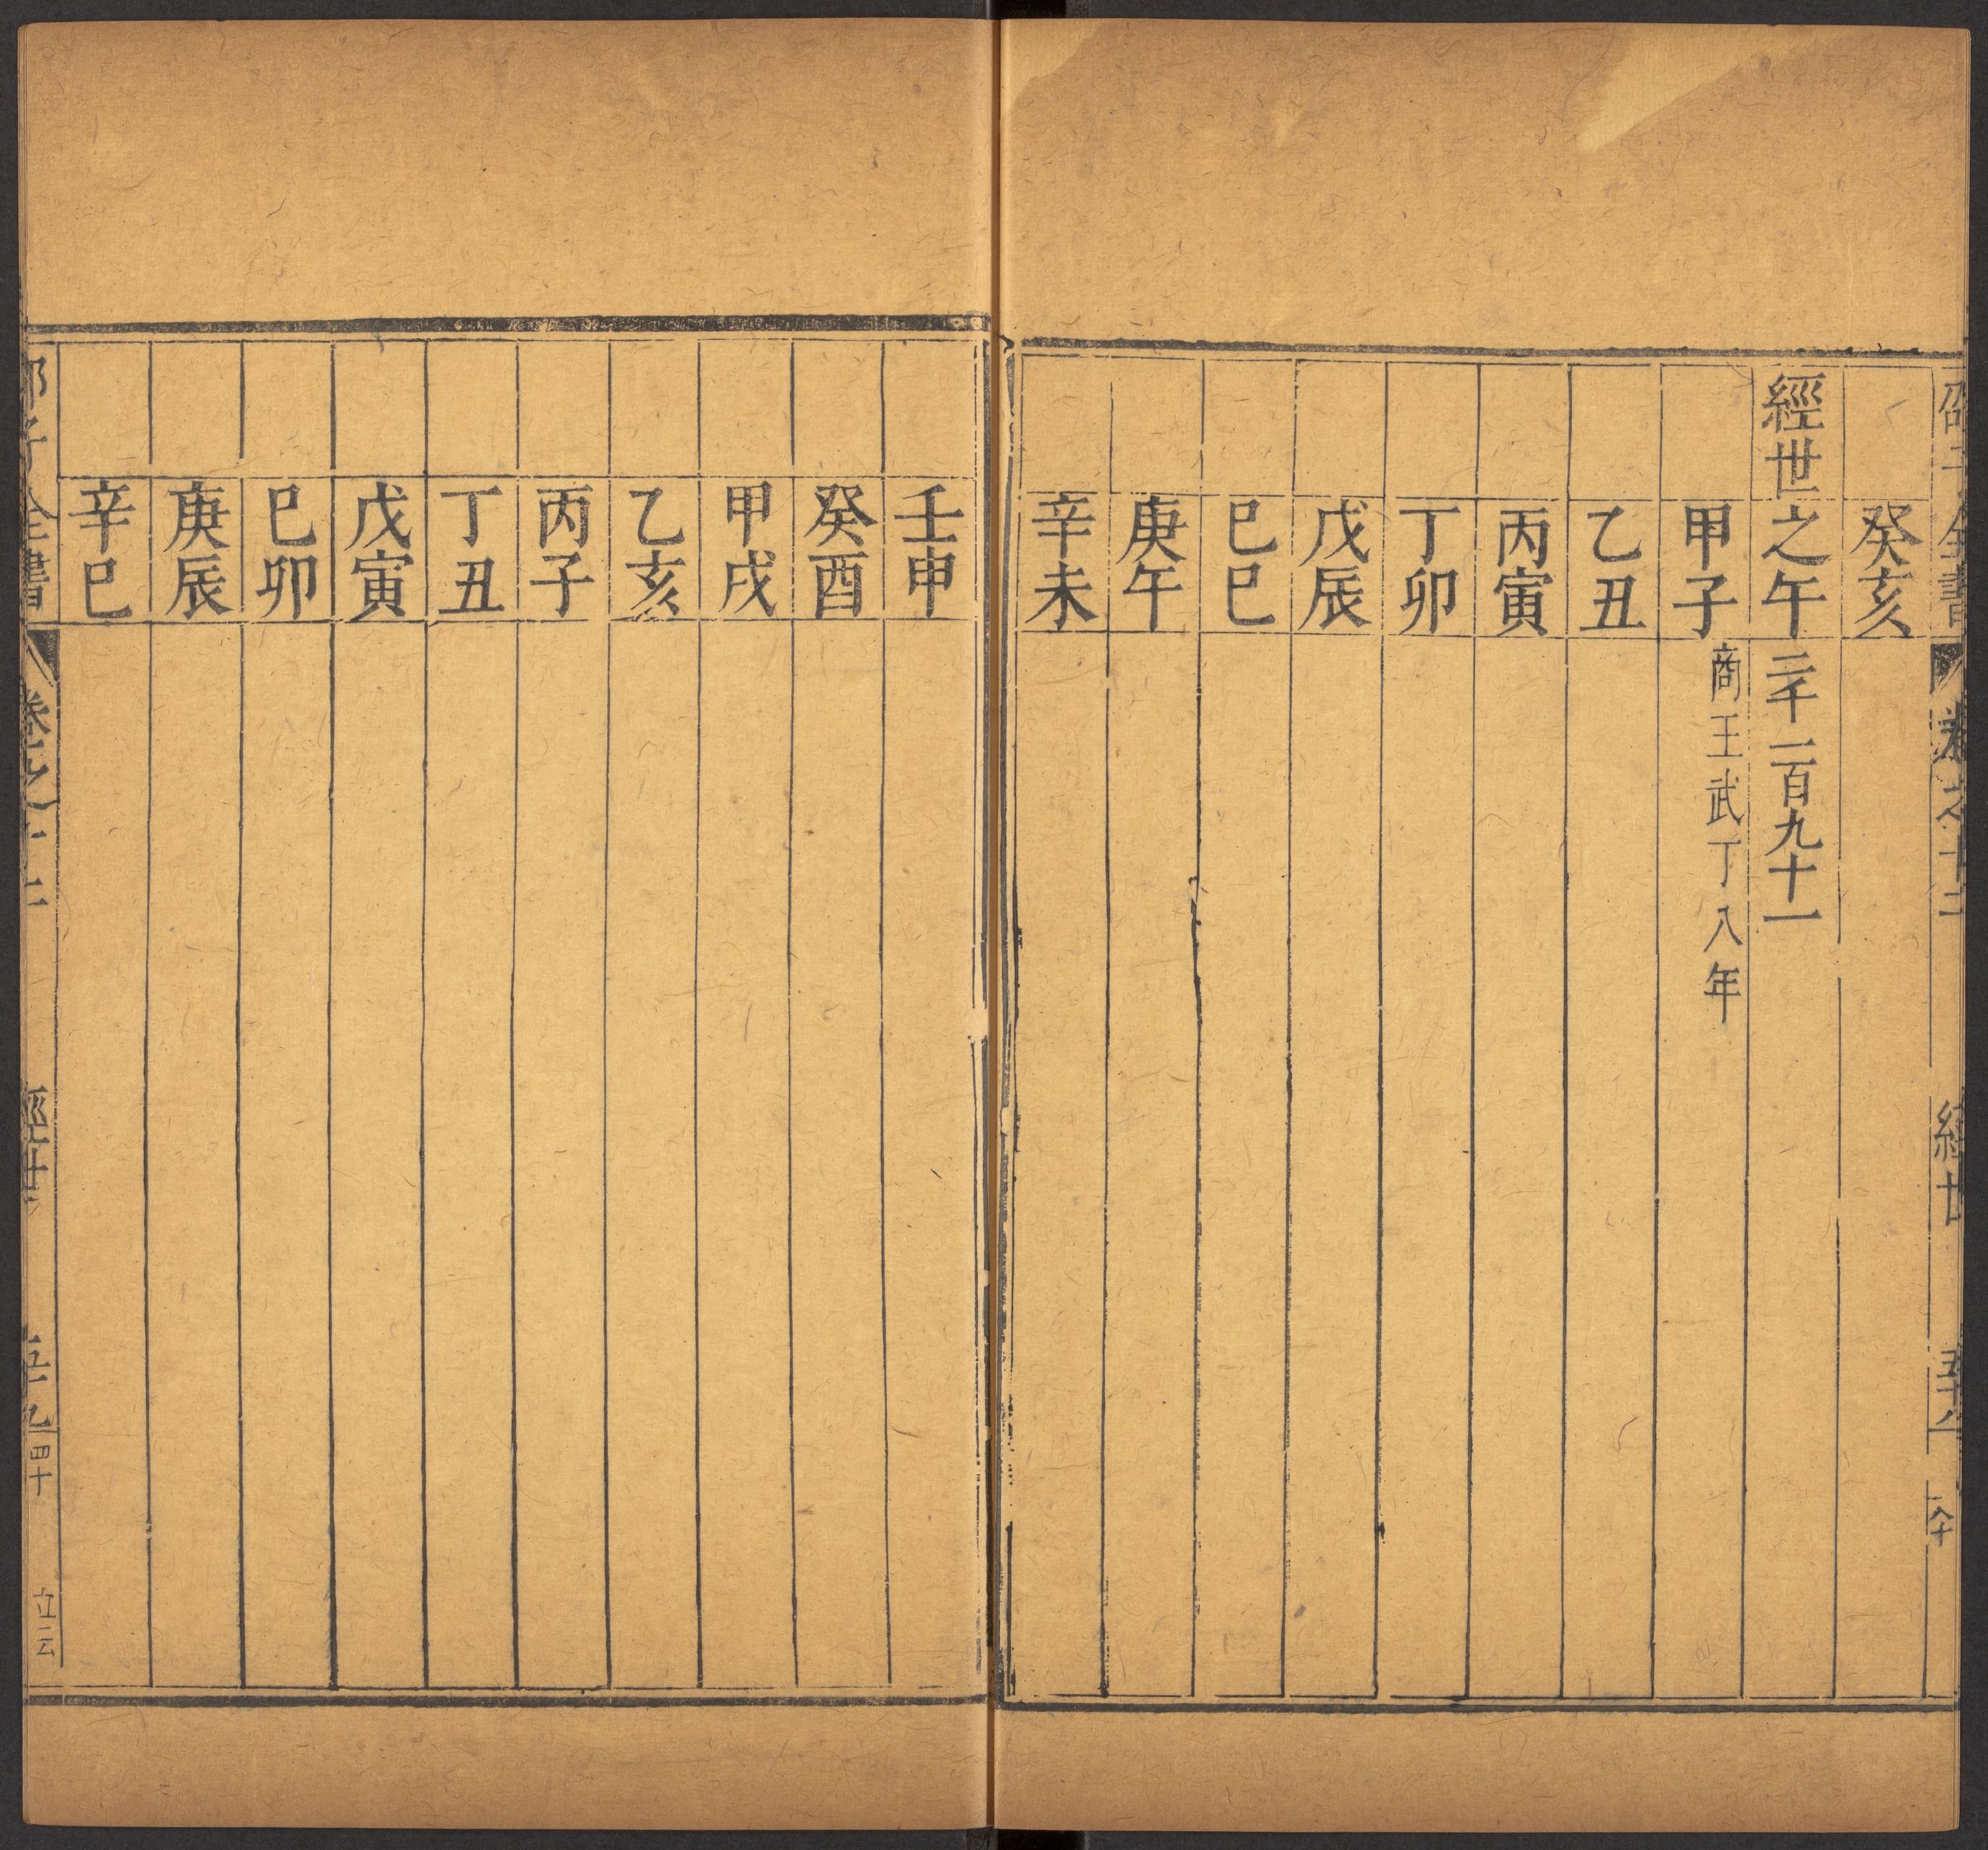 邵子全書 卷之十二 經世 五十八
癸亥
經世之午二千一百九十一
甲子 商王武丁八年
乙丑
丙寅
丁卯
戊辰
巳巳
庚午
辛未
壬申
癸酉
甲戌
乙亥
丙子
丁丑
戊寅
巳卯
庚辰
辛巳
邵子全書 卷之十二 經世 五十九 四十 立云